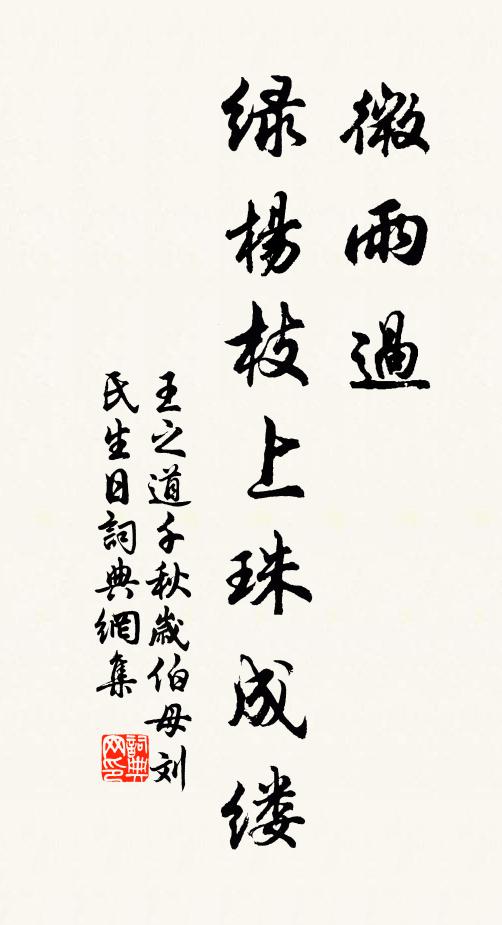 微雨過
绿楊枝上珠成缕
王之道千秋歲伯母刘
氏生日詞典網集
詞典網印